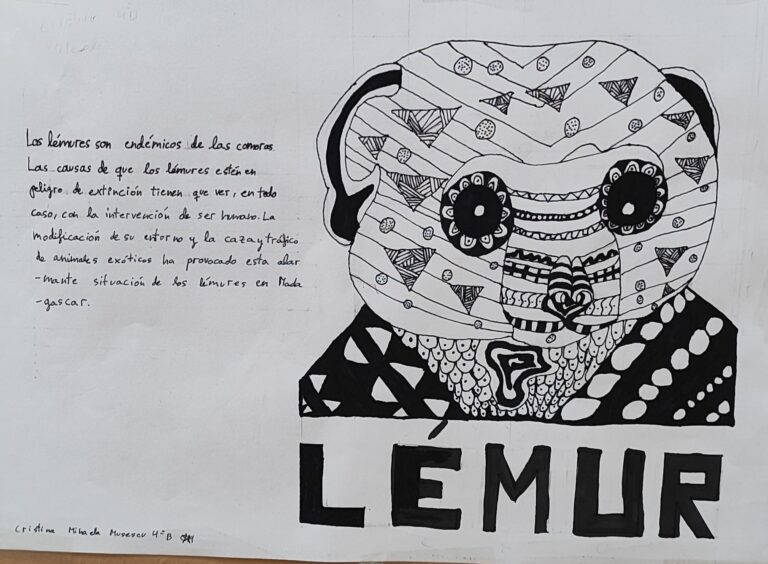 Los lémures son endémicos de las comoras.
Las causas de que los lémures estén en
peligro de extinción tienen que ver, en todo
caso, con la intervención de ser humano. La
modificación de su entorno y la caza y tráfico
de animales exóticos ha provocado esta alar
-mante situación de los lémures en Mada
-gascar.
LÉMUR
Cristina Mihaela 4º B